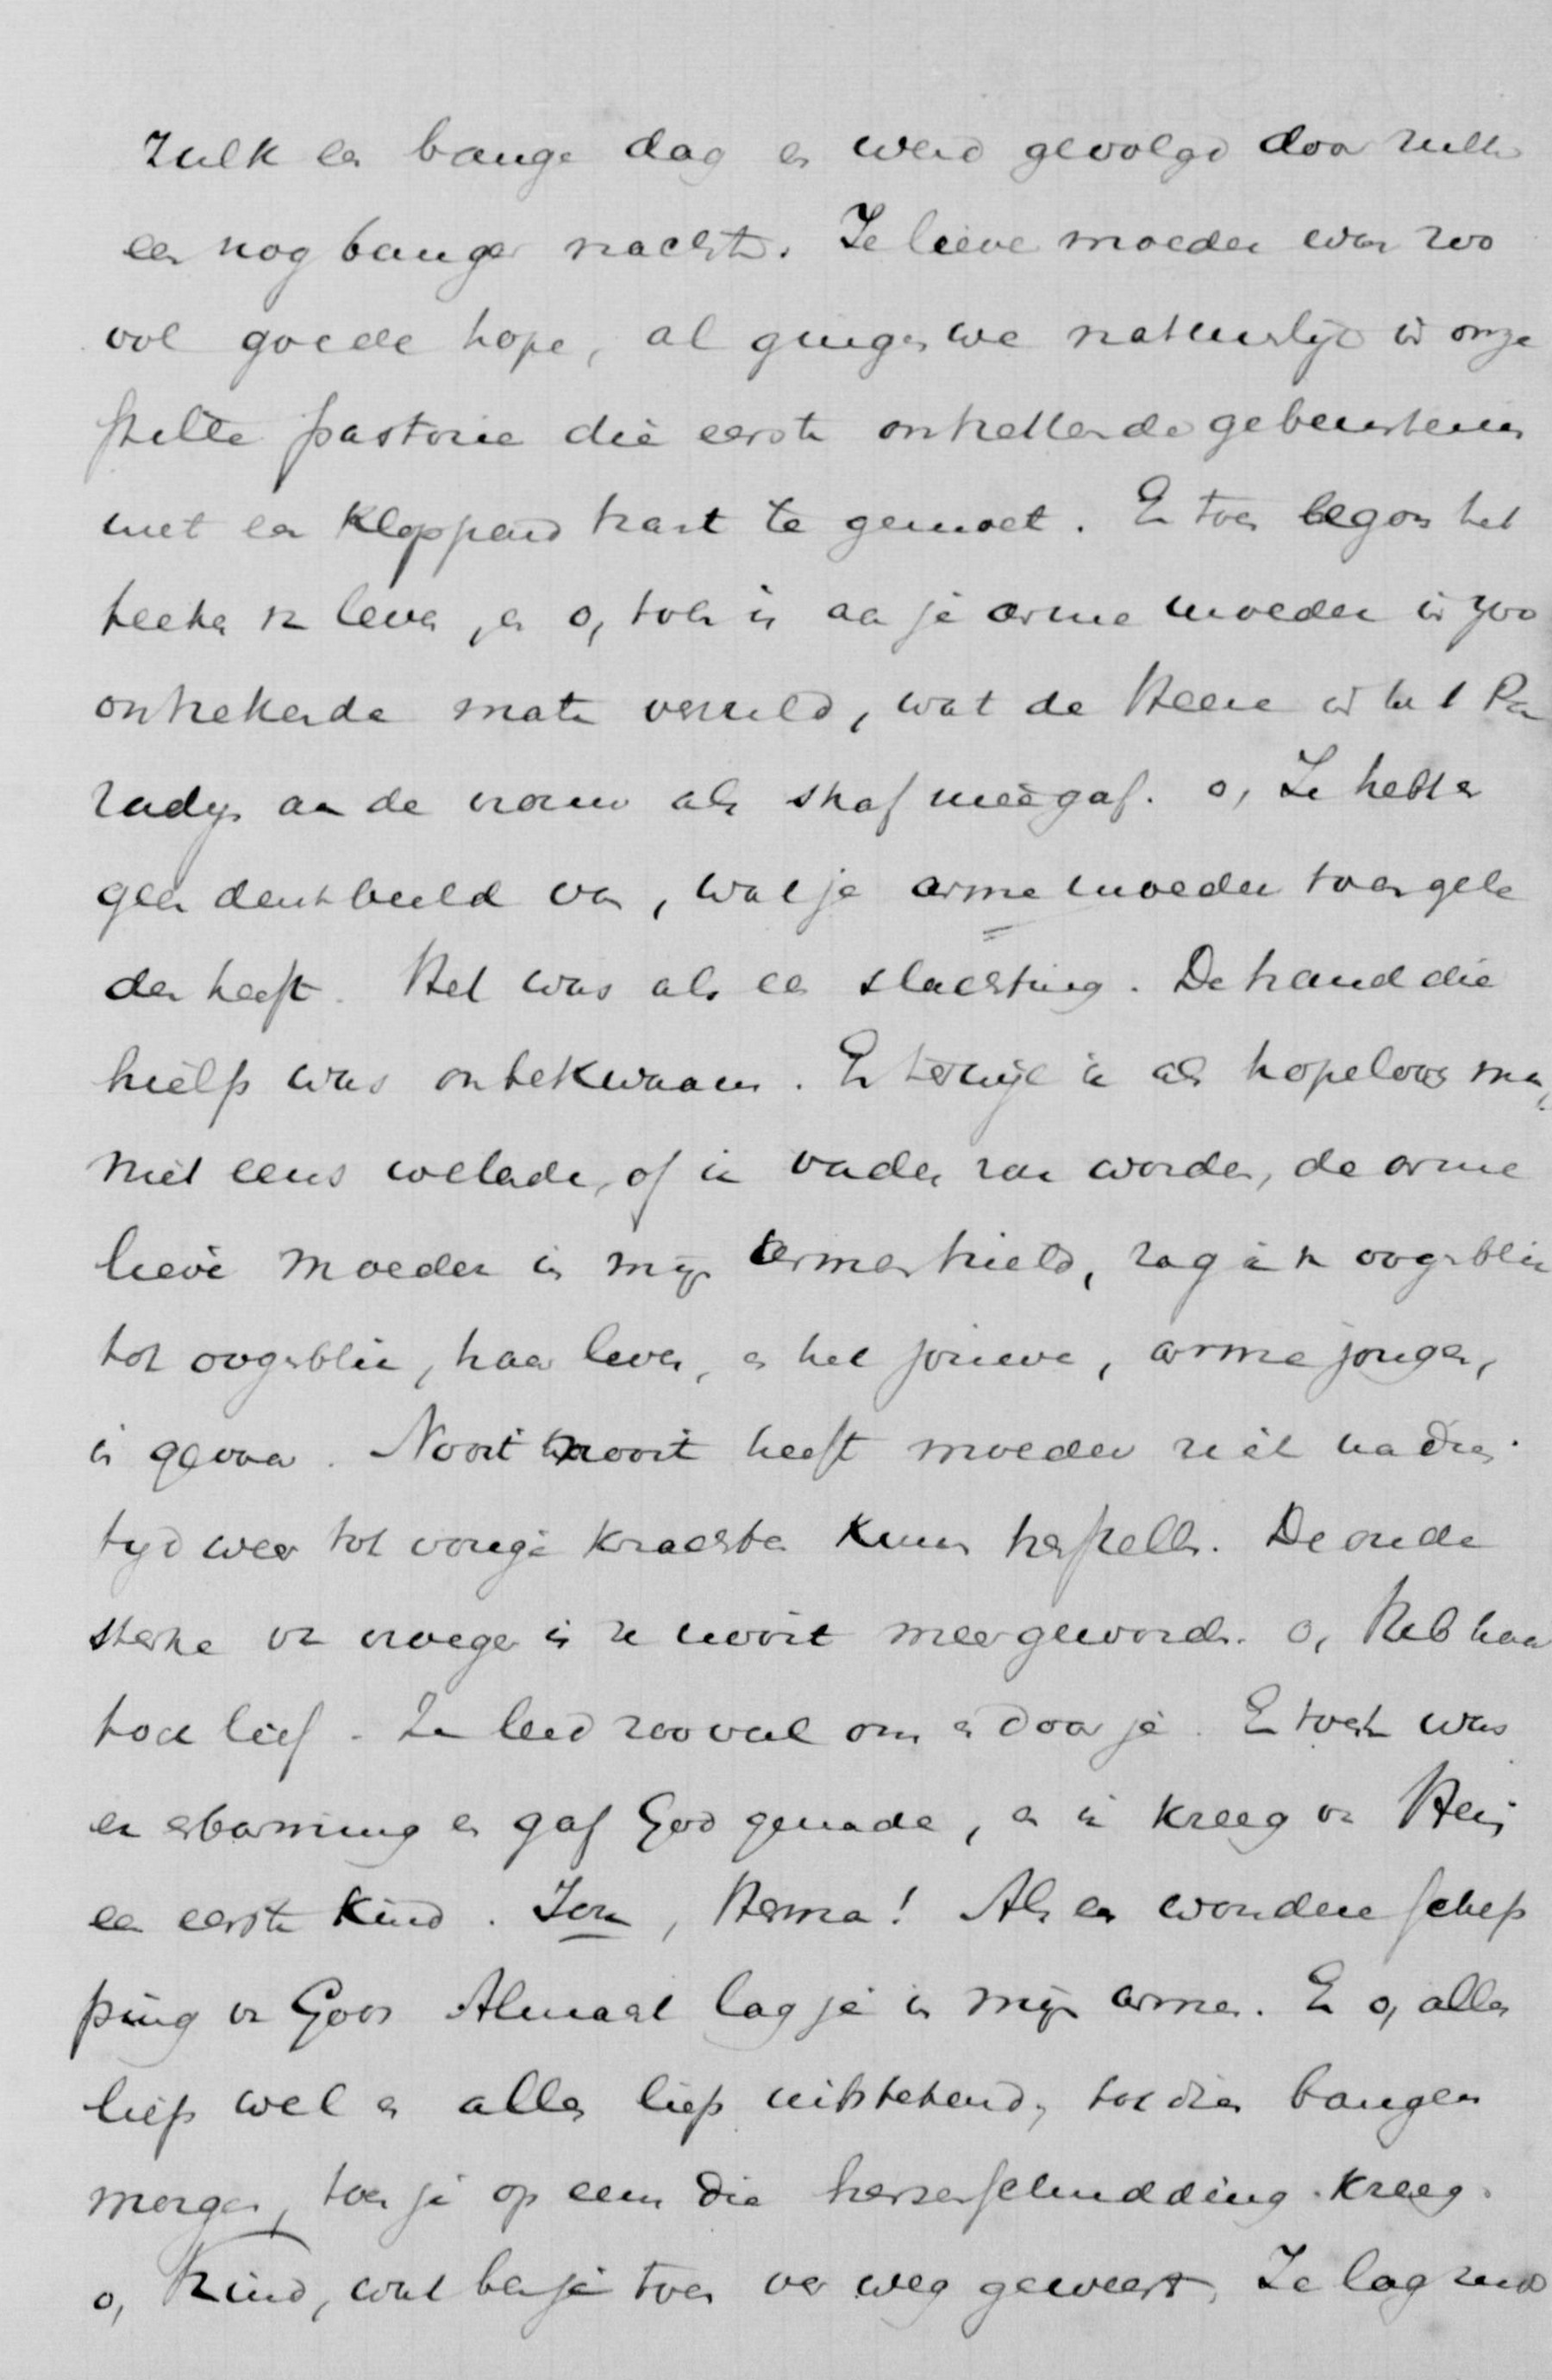 zulk een bange dag en werd gevolgd door zulk
een nog banger nacht. Je lieve moeder was zoo
vol goede hope, al gingen we natuurlijk in onze
stille pastorie die eerste ontzettende gebeurtenis
met een kloppend hart te gemoet. En toen begon het
teeken van leven, en o, toen is aan je arme moeder in zoo
ontzettende mate vervuld, wat de Heere in het Pa
radijs aan de vrouw als straf meegaf. o, Je hebt er
geen denkbeeld van, wat je arme moeder toen gele
den heeft. Het was als een slachting. De hand die
hielp was onbekwaam. En terwijl ik als hopeloos man,
niet eens wetende, of ik vader zou worden, de arme
lieve moeder in mijn armen hield, zag ik van oogenblik
tot oogenblik, haar leven, en het jouwe, arme jongen,
in gevaar. Nooit nooit heeft moeder zich na dien
tijd weer tot vorige krachten kunnen herstellen. De oude
sterke van vroeger is ze nooit meer geworden. o, Heb haar
toch lief. Ze leed zooveel om en door je. En toch was
er erbarming en gaf God genade, en ik kreeg van Hem
een eerste kind. Jou, Herman! Als een wondere schep
ping van Gods Almacht lag je in mijn armen. En o, alles
liep wel en alles liep uitstekend, tot dien bangen
morgen, toen je op eens die hersenschudding kreeg.
o, Kind, wat ben je toen ver weg geweest. Je lag